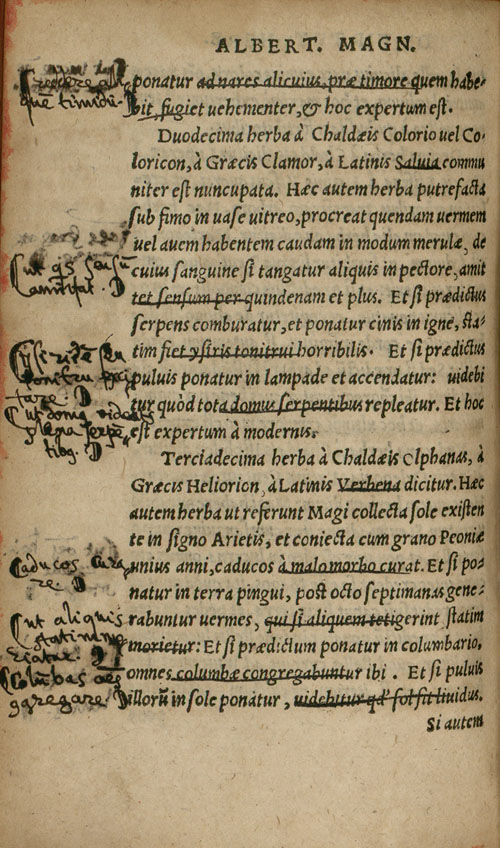 ALBERT. MAGN.
ponatur ad nares alicuius, præ timore quem habe-
bit, fugiet uehementer, & hoc expertum est.
Duodecima herba à Chaldæis Colorio uel Co-
loricon, à Græcis Clamor, à Latinis Saluia commu
niter est nuncupata. Hæc autem herba putrefacta
sub fimo in uase uitreo, procreat quendam uermem
uel auem habentem caudam in modum merulæ, de
cuius sanguine si tangatur aliquis in pectore, amit
tet sensum per quindenam et plus. Et si prædictus
serpens comburatur, et ponatur cinis in igne, sta-
tim fiet ysiris tonitrui horribilis. Et si prædictus
puluis ponatur in lampade et accendatur: uidebi
tur quòd tota domus serpentibus repleatur. Et hoc
est expertum à modernis.
Terciadecima herba à Chaldæis Olphanas, à
Græcis Heliorion, à Latinis Verbena dicitur. Hæc
autem herba ut referunt Magi collecta sole existen
te in signo Arietis, et coniecta cum grano Peoniæ
unius anni, caducos à malo morbo curat. Et si po-
natur in terra pingui, post octo septimanas gene-
rabuntur uermes, qui si aliquem tetigerint statim
morietur: Et si prædictum ponatur in columbario,
omnes columbæ congregabuntur ibi. Et si puluis
illorū in sole ponatur, uidebitur qd' sol sit liuidus.
Si autem
Caducos cura
re.
Cut aliquis
statim mo
riatur.
Columbas
gregare.